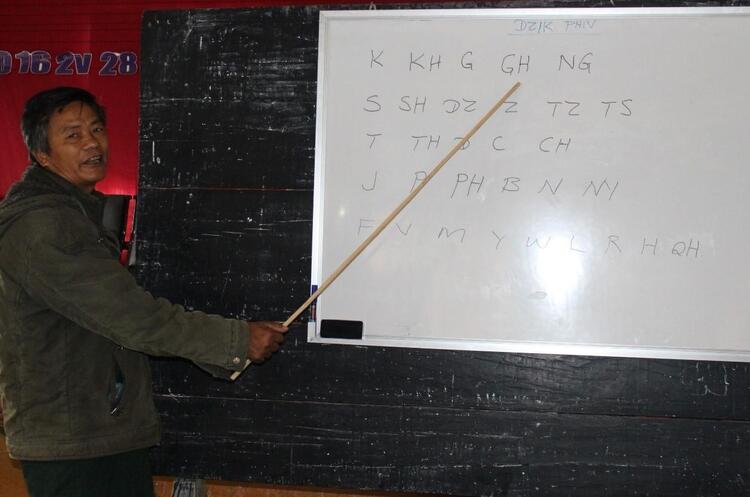 DZIK PHIV
K KH G GH NG
S SH DZ Z TZ TS
T TH D C CH
J P PH B N NY
F V M Y W L R H QH
16 2V 28